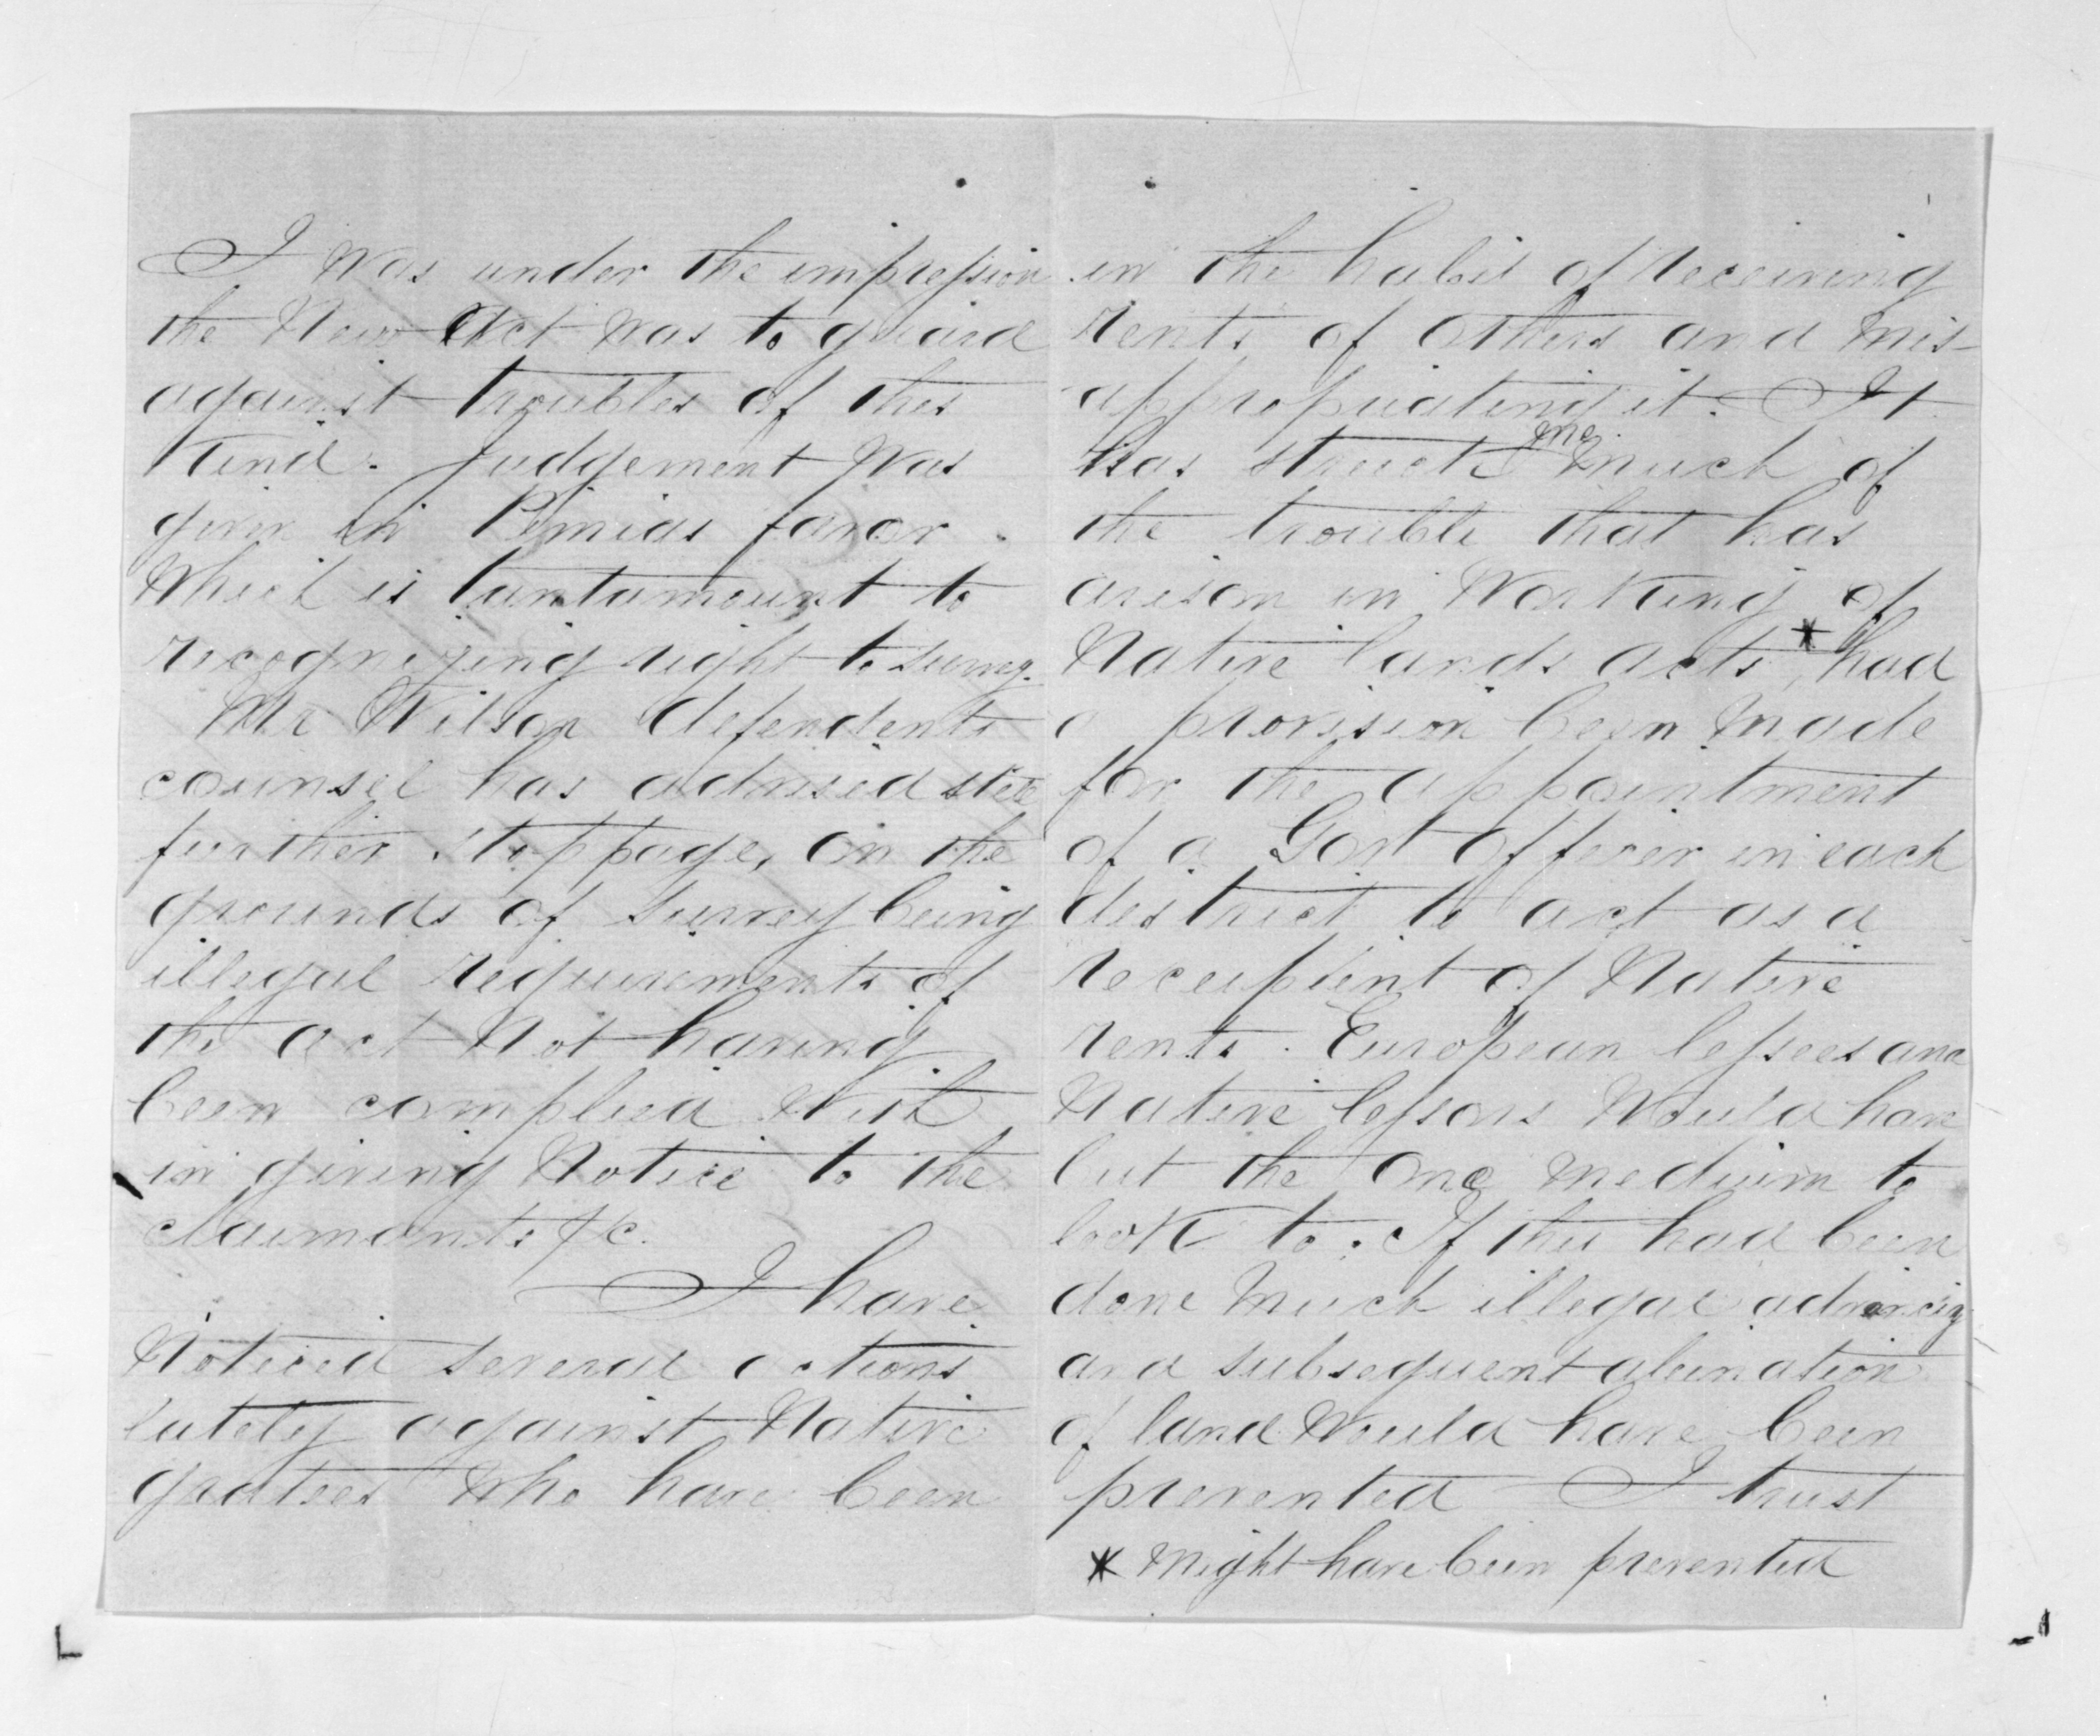 I was under the impression
the New Act was to guard
against troubles of this
kind. Judgement was
given in Pimias favor.
which is tantamount to
recognizing right to survey.
Mr Wilson defendents
counsel has advised still
further stoppage, on the
grounds of survey being
illegal requirements of
the act not having
been complied with
in giving notice to the
claimants &c.
I have
noticed several actions
lately against Native
grantees who have been
in the habit of receiving
rents of others and mis-
appropriating it. It
has struck me much of
the trouble that has
arison in working of
Native lands acts * had
a provision been made
for the appointment
of a Govt Officer in each
district to act as a
receipient of Native
rents. European lessees and
Native lessors would have
but the one medium to
look to. If this had been
done much illegal advancing
and subsequent alienation
of land would have been
prevented I trust
* might have been prevented